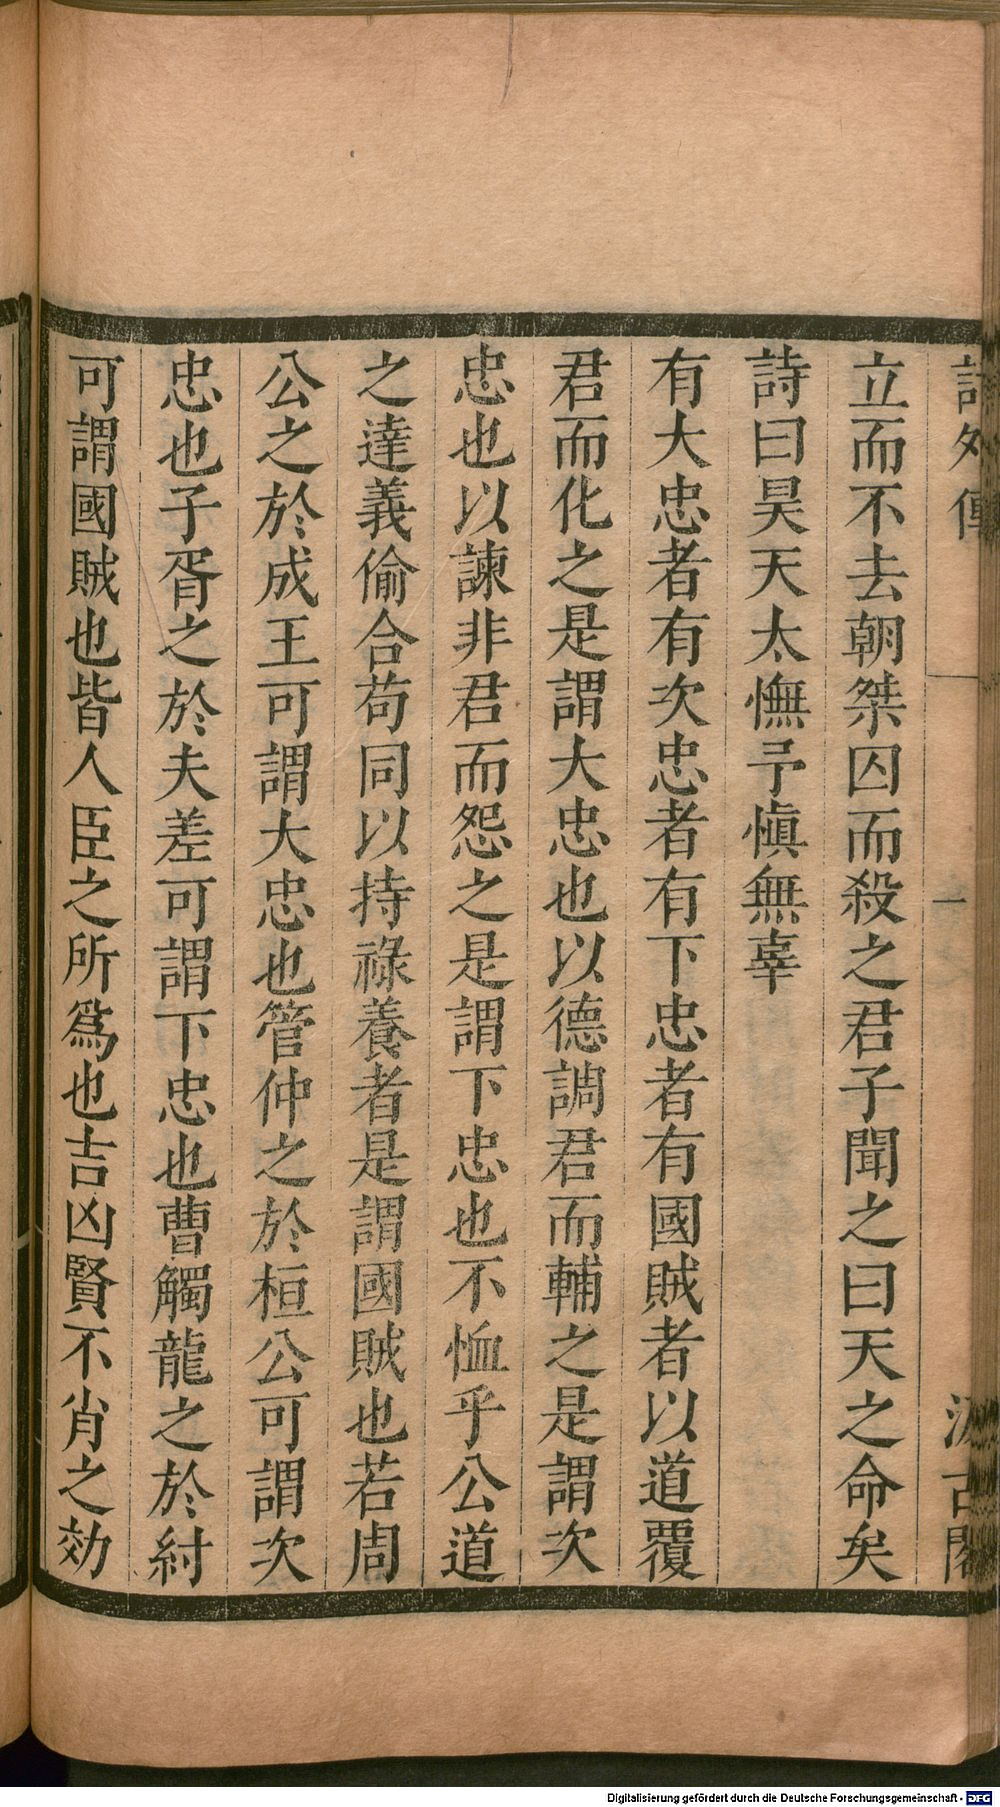 詩外傳 一 汲古閣
立而不去朝桀囚而殺之君子聞之曰天之命矣
詩曰昊天太憮予慎無辜
有大忠者有次忠者有下忠者有國賊者以道覆
君而化之是謂大忠也以德調君而輔之是謂次
忠也以諫非君而怨之是謂下忠也不恤乎公道
之達義偷合苟同以持祿養者是謂國賊也若周
公之於成王可謂大忠也管仲之於桓公可謂次
忠也子胥之於夫差可謂下忠也曹觸龍之於紂
可謂國賊也皆人臣之所爲也吉凶賢不肖之効
Digitalisierung gefördert durch die Deutsche Forschungsgemeinschaft - DFG